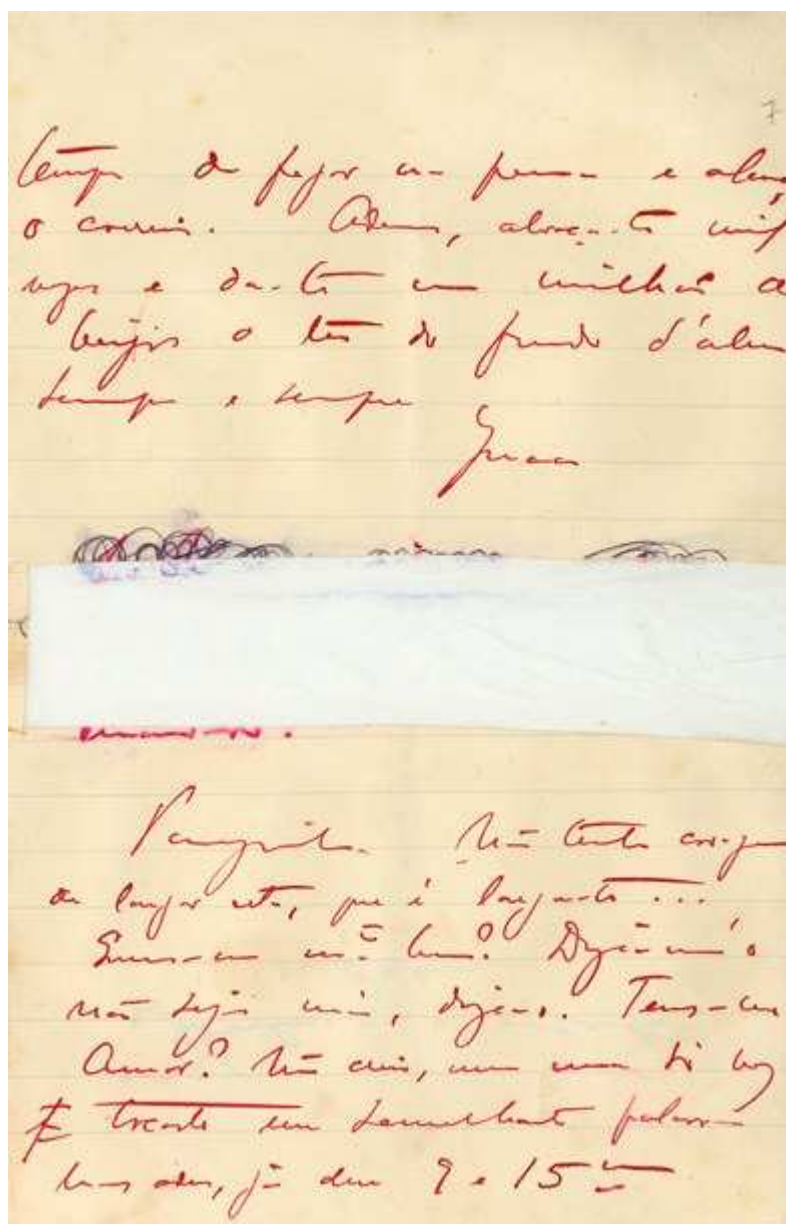 7
tempo de pegar na penna e
o correio. Adeus, abraça-te mil
vezes e da-te um milhão
beijos o teu do fundo d'alma
sempre e sempre
Panguinha. Não tenho coragem
de largar esta, que é largar-te...
Queres-me m.to bem? Dize-m'o
não sejas má, dize-o. Tens-me
Amor? Não creio, nem uma só vez
tocaste em semelhante palavra
bem adeus, já deu 9 e 15 m